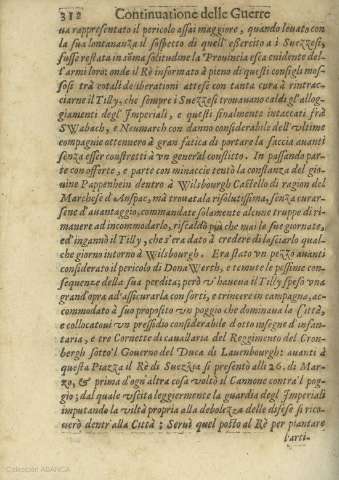 312 Continuatione delle Guerre
ua rappresentato il pericolo assai maggiore, quando leuato con
la sua lontananza il sospetto di quell'essercito a i Suezzesi,
fusse restata in sõma solitudine la Prouincia esca euidente del-
l'armi loro: onde il Rè informato à pieno di questi consigli mos-
sosi trà totali deliberationi attese con tanta cura à rintrac-
ciarne il Tilly, che sempre i Suezzesi trouauano caldi gl'allog-
giamenti degl'Imperiali, e questi finalmente intaccati frà
Swabach, e Neumarch con danno considerabile dell'vltime
compagnie ottennero à gran fatica di portare la faccia auanti
senza esser constretti à vn general conflitto. In passando par-
te con offerte, e parte con minaccie tentò la constanza del gio-
uine Pappenheim dentro à Wilsbourgh Castello di ragion del
Marchese d'Anspac, mà trouatala risolutissima, senza curar-
sene d'auantaggio, commandate solamente alcune truppe di ri-
manere ad incommodarlo, riscaldò più che mai le sue giornate,
ed ingannò il Tilly, che s'era dato à credere di lasciarlo qual-
che giorno intorno à Wilsbourgh. Era stato vn pezzo auanti
considerato il pericolo di DonaWerth, e temute le pessime con-
sequenze della sua perdita; però v'haueua il Tilly speso vna
grand'opra ad assicurarla con forti, e trincere in campagna, ac-
commodato à suo proposito vn poggio che dominaua la Città,
e collocatoui vn pressidio considerabile d'otto insegne d'infan-
taria, e tre Cornette di cauallaria del Reggimento del Cron-
bergh sotto'l Gouerno del Duca di Lauenbourgh: auanti à
questa Piazza il Rè di Suezzia si presentò alli 26. di Mar-
zo, & prima d'ogni altra cosa voltò il Cannone contra'l pog-
gio; dal quale vscita leggiermente la guardia degl'Imperiali
imputando la viltà propria alla debolezza delle difese si rico-
uerò dentr'alla Città; Seruì quel posto al Rè per piantare
l'arti-
Colección ABANCA